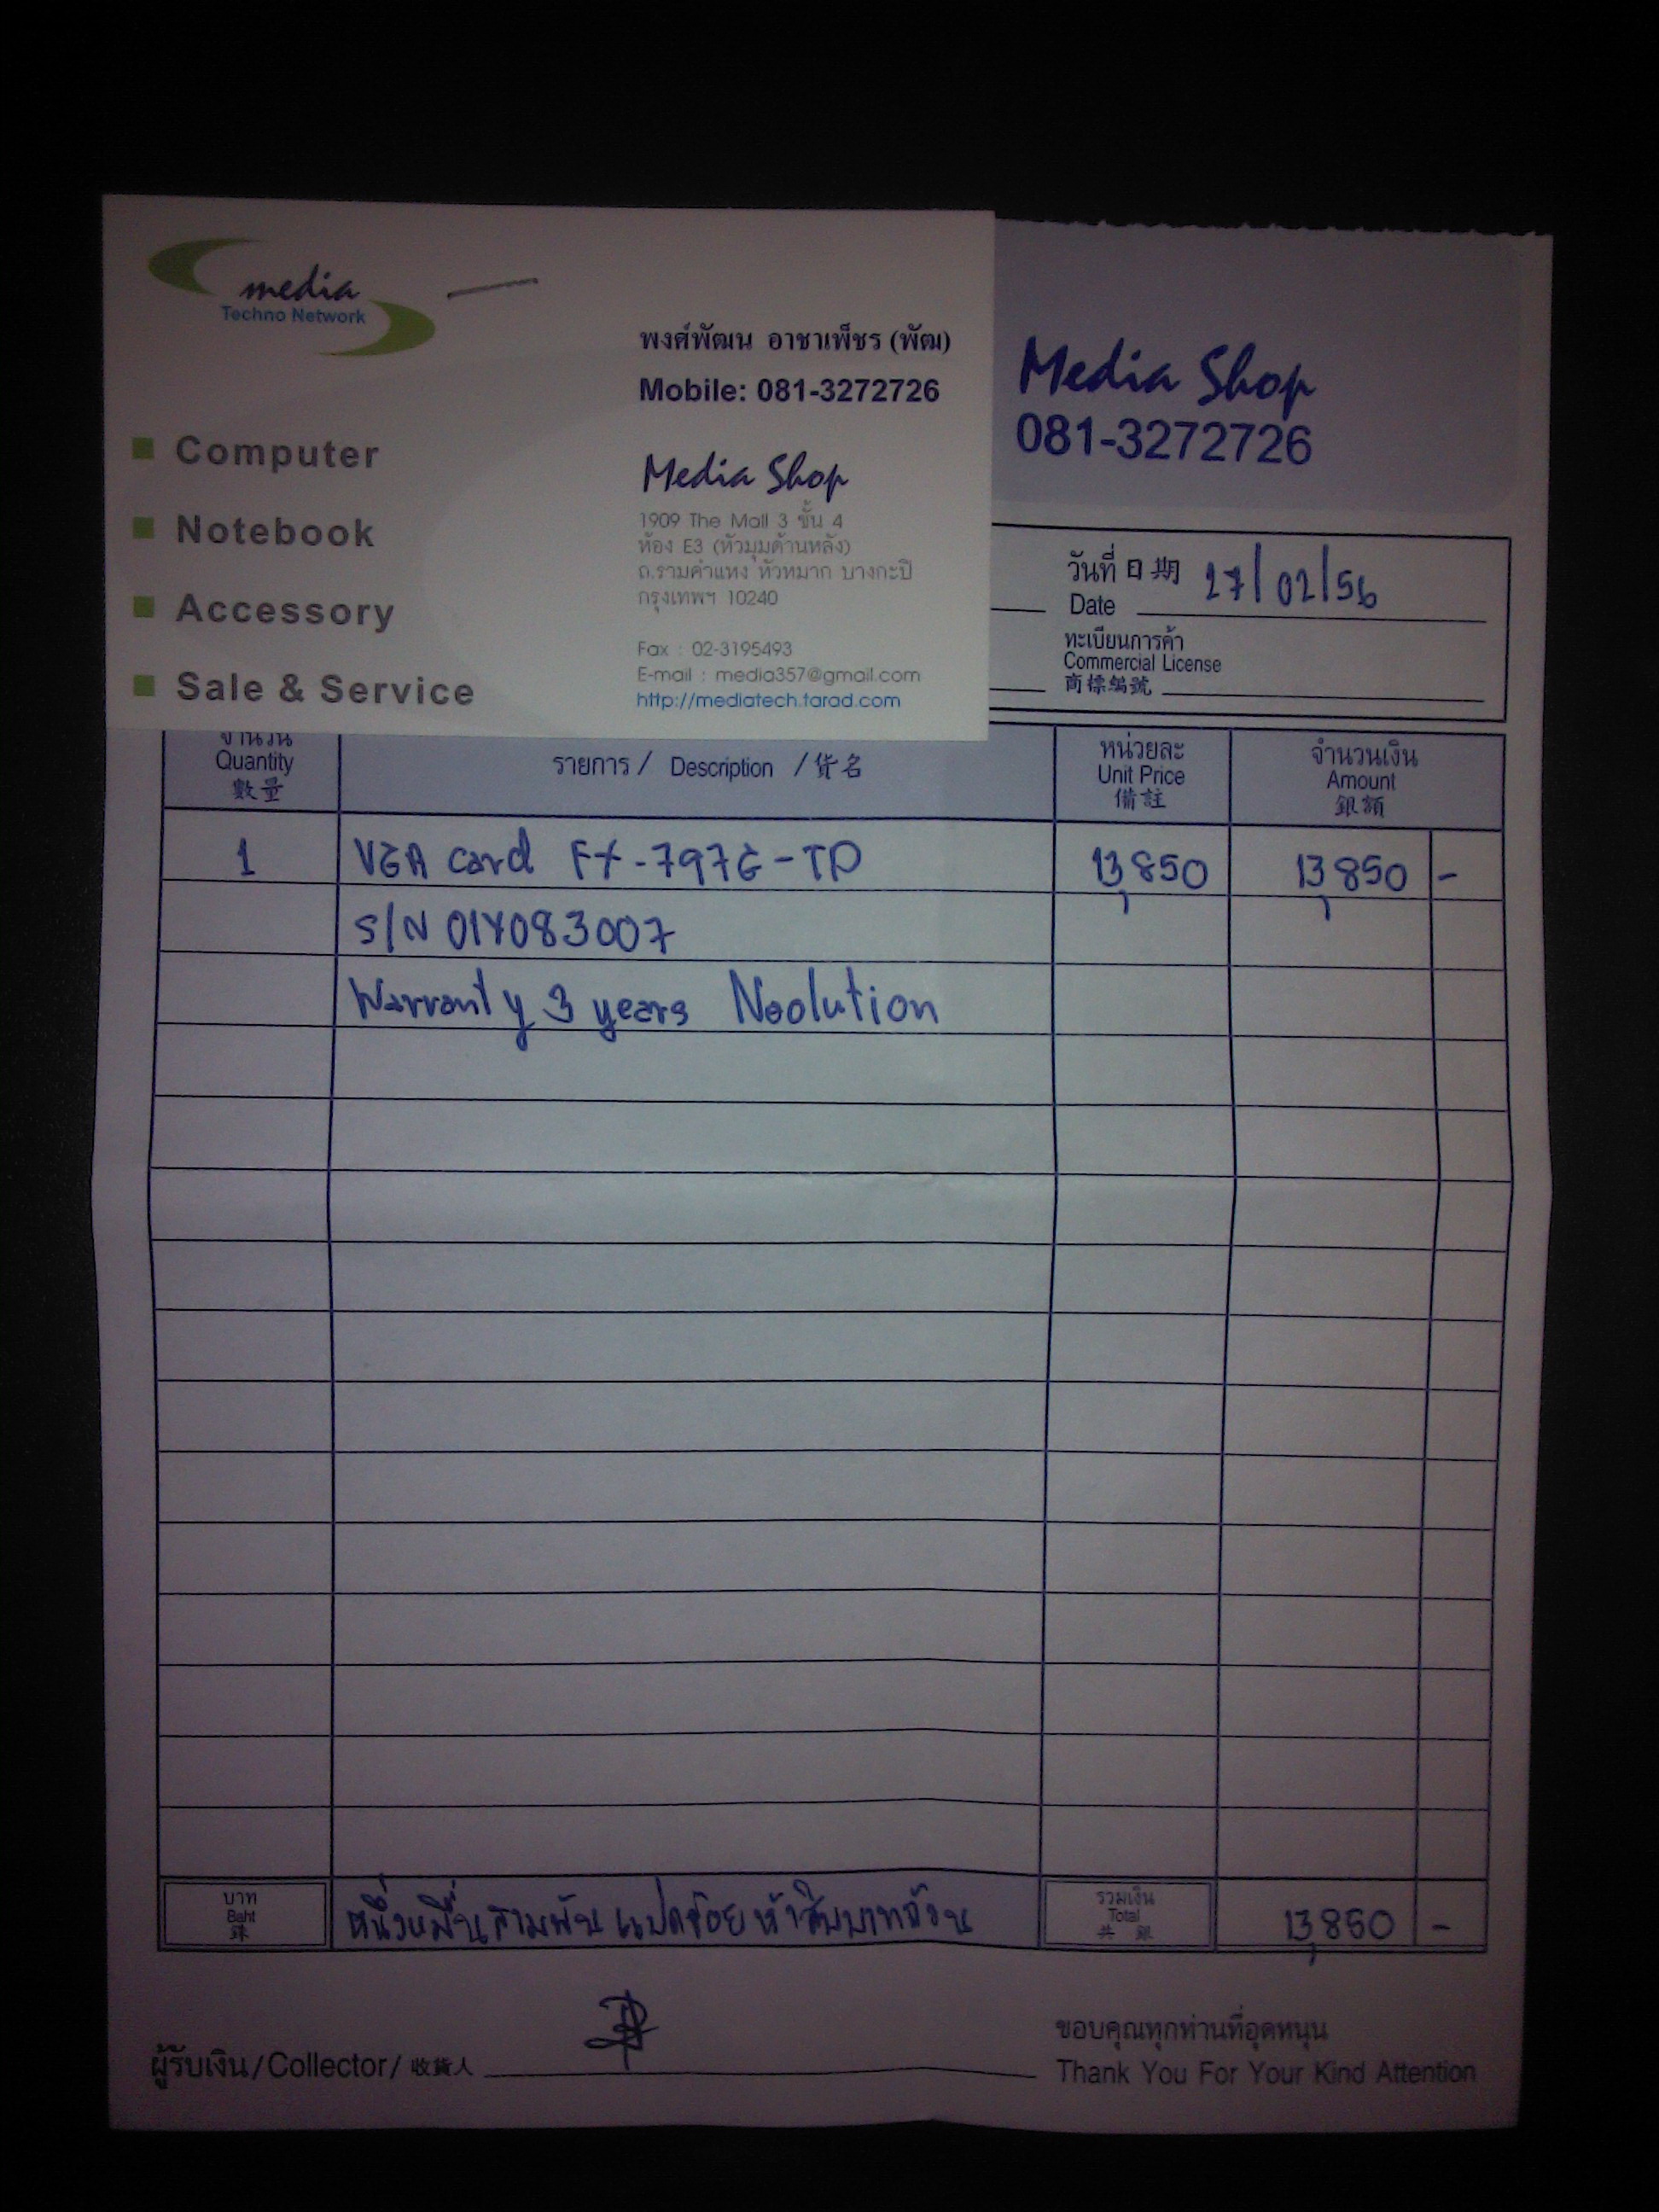 media
Techno Network
พงศ์พัฒน อาชาเพ็ชร (พัฒ)
Mobile: 081-3272726
Computer
Notebook
Accessory
Sale & Service
Media Shop
1909 The Mall 3 ชั้น 4
ห้อง E3 (หัวมุมด้านหลัง)
ถ.รามคำแหง หัวหมาก บางกะปิ
กรุงเทพฯ 10240
Fax : 02-3195493
E-mail : media357@gmail.com
http://mediatech.tarad.com
Media Shop
081-3272726
วันที่ 日期 27/02/56
Date
ทะเบียนการค้า
Commercial License
商標編號
จำนวน
Quantity
數量
รายการ / Description / 貨名
หน่วยละ
Unit Price
備註
จำนวนเงิน
Amount
銀額
1 VGA card FX-797G-TD 13,850 13,850 -
S/N 01Y083007
Warranty 3 years Neolution
บาท
Baht
銖
หนึ่งหมื่นสามพันแปดร้อยห้าสิบบาทถ้วน
รวมเงิน
Total
共 銀
13,850 -
ผู้รับเงิน/Collector/收貨人
ขอบคุณทุกท่านที่อุดหนุน
Thank You For Your Kind Attention